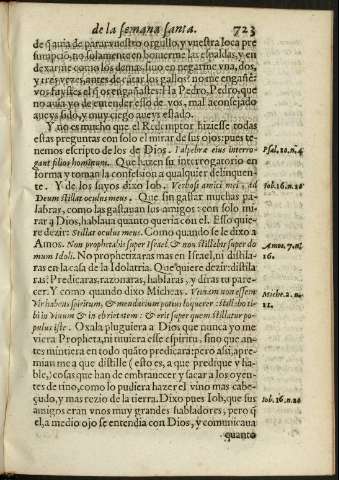 de la semana santa. 723
de q̃ auia de parar vuestro orgullo, y vuestra loca pre
sumpciõ, no solamente en boluerme las espaldas, y en
dexarme como los demas, sino en negarme vna, dos,
y tres vezes, antes de cãtar los gallos? no me engañè:
vos fuystes el q̃ os engañastes: Ha Pedro, Pedro, que
no auia yo de entender esso de vos, mal aconsejado
aueys sido, y muy ciego aueys estado.
Y no es mucho que el Redemptor hiziesse todas
estas preguntas con solo el mirar de sus ojos: pues te-
nemos escrito de los de Dios. Palpebræ eius interro-
gant filios hominum. Que hazen su interrogatorio en
forma y toman la confession a qualquier delinquen-
te. Y de los suyos dixo Iob. Verbosi amici mei, ad
Deum stillat oculus meus. Que sin gastar muchas pa-
labras, como las gastauan sus amigos: con solo mi-
rar a Dios, hablaua quanto queria con el. Esso quie-
re dezir: Stillat oculus meus. Como quando se le dixo a
Amos. Non prophetabis super Israel & non stillabis super do
mum Idoli. No prophetizaras mas en Israel, ni distila-
ras en la casa de la Idolatria. Que quiere dezir: distila
ras? Predicaras, razonaras, hablaras, y diras tu pare-
cer. Y como quando dixo Micheas. Vtinam non essem
Vir habens spiritum, & mendacium potius loquerer: stillabo ti-
bi in Vinum & in ebrietatem: & erit super quem stillatur po-
pulus iste. Oxala pluguiera a Dios que nunca yo me
viera Propheta, ni tuuiera esse espiritu, sino que an-
tes mintiera en todo quãto predicara: pero assi, apre-
mian me a que distille (esto es, a que predique y ha-
ble,) cosas que han de embrauecer y sacar a los oyen-
tes de tino, como lo pudiera hazer el vino mas cabe-
çudo, y mas rezio de la tierra. Dixo pues Iob, que sus
amigos eran vnos muy grandes habladores, pero q̃
el, a medio ojo se entendia con Dios, y comunicaua
quanto
Psal. 10. n. 4
Iob. 16. n. 20
Amos. 7. n.
16.
Miche. 2. n.
11.
Iob. 16. n. 20